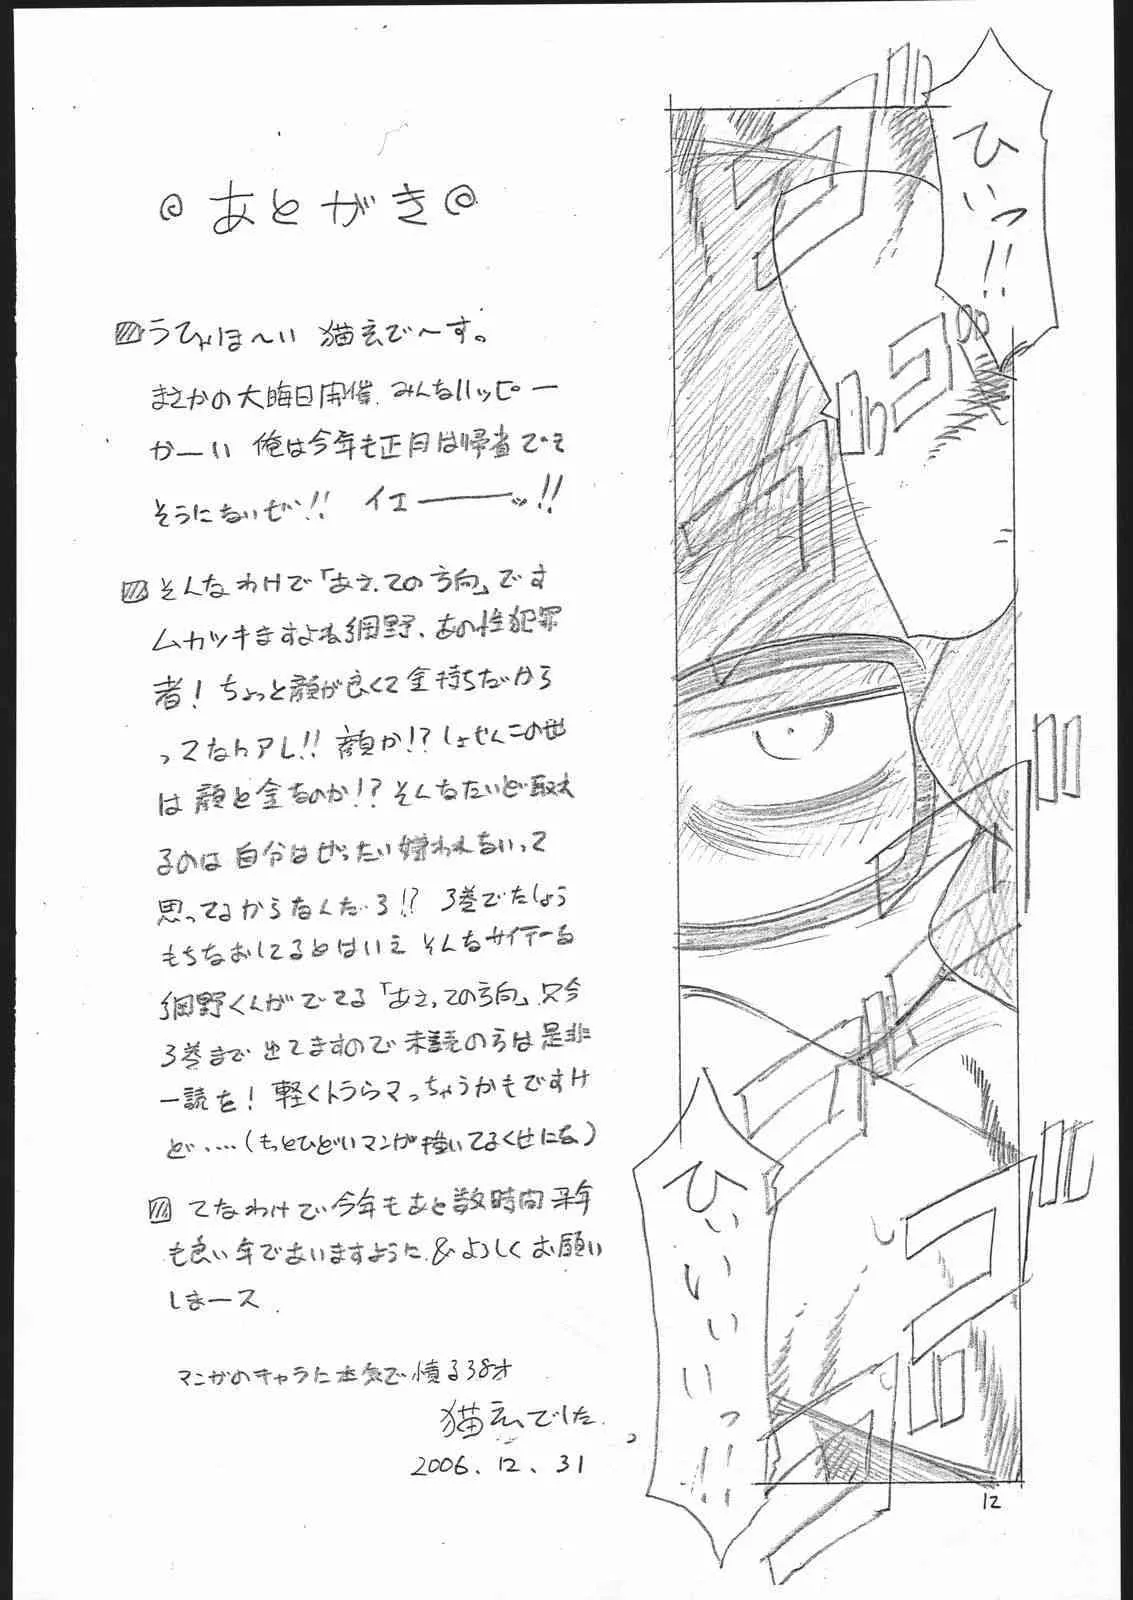 あとがき
うひゃほ〜い 猫玄で〜す。
まさかの大晦日開催、みんなハッピー
かーい 俺は今年も正月は帰省でき
そうにないぜ!! イエーーーッ!!
そんなわけで「あえての方向」です
ムカツキますよね網野、あの性犯罪
者!ちょっと顔が良くて金持ちだから
ってなんアレ!!顔か!?しょせんこの世
は顔と金なのか!?そんなたいど取れ
るのは自分はぜったい嫌われないって
思ってるからなんだろ!?3巻でたしょう
もちなおしてるとはいえそんなサイテーな
網野くんがでてる「あえての方向」只今
3巻まで出てますので未読の方は是非
一読を!軽くトラウマっちゃうかもですけ
ど・・・・(もっとひどいマンガ描いてるくせにな)
てなわけで今年もあと数時間来年
も良い年でありますように&よろしくお願い
しまース
マンガのキャラに本気で憤る38才
猫玄でした。
2006.12.31
ひいっ!!
ひいいいっ!!
12